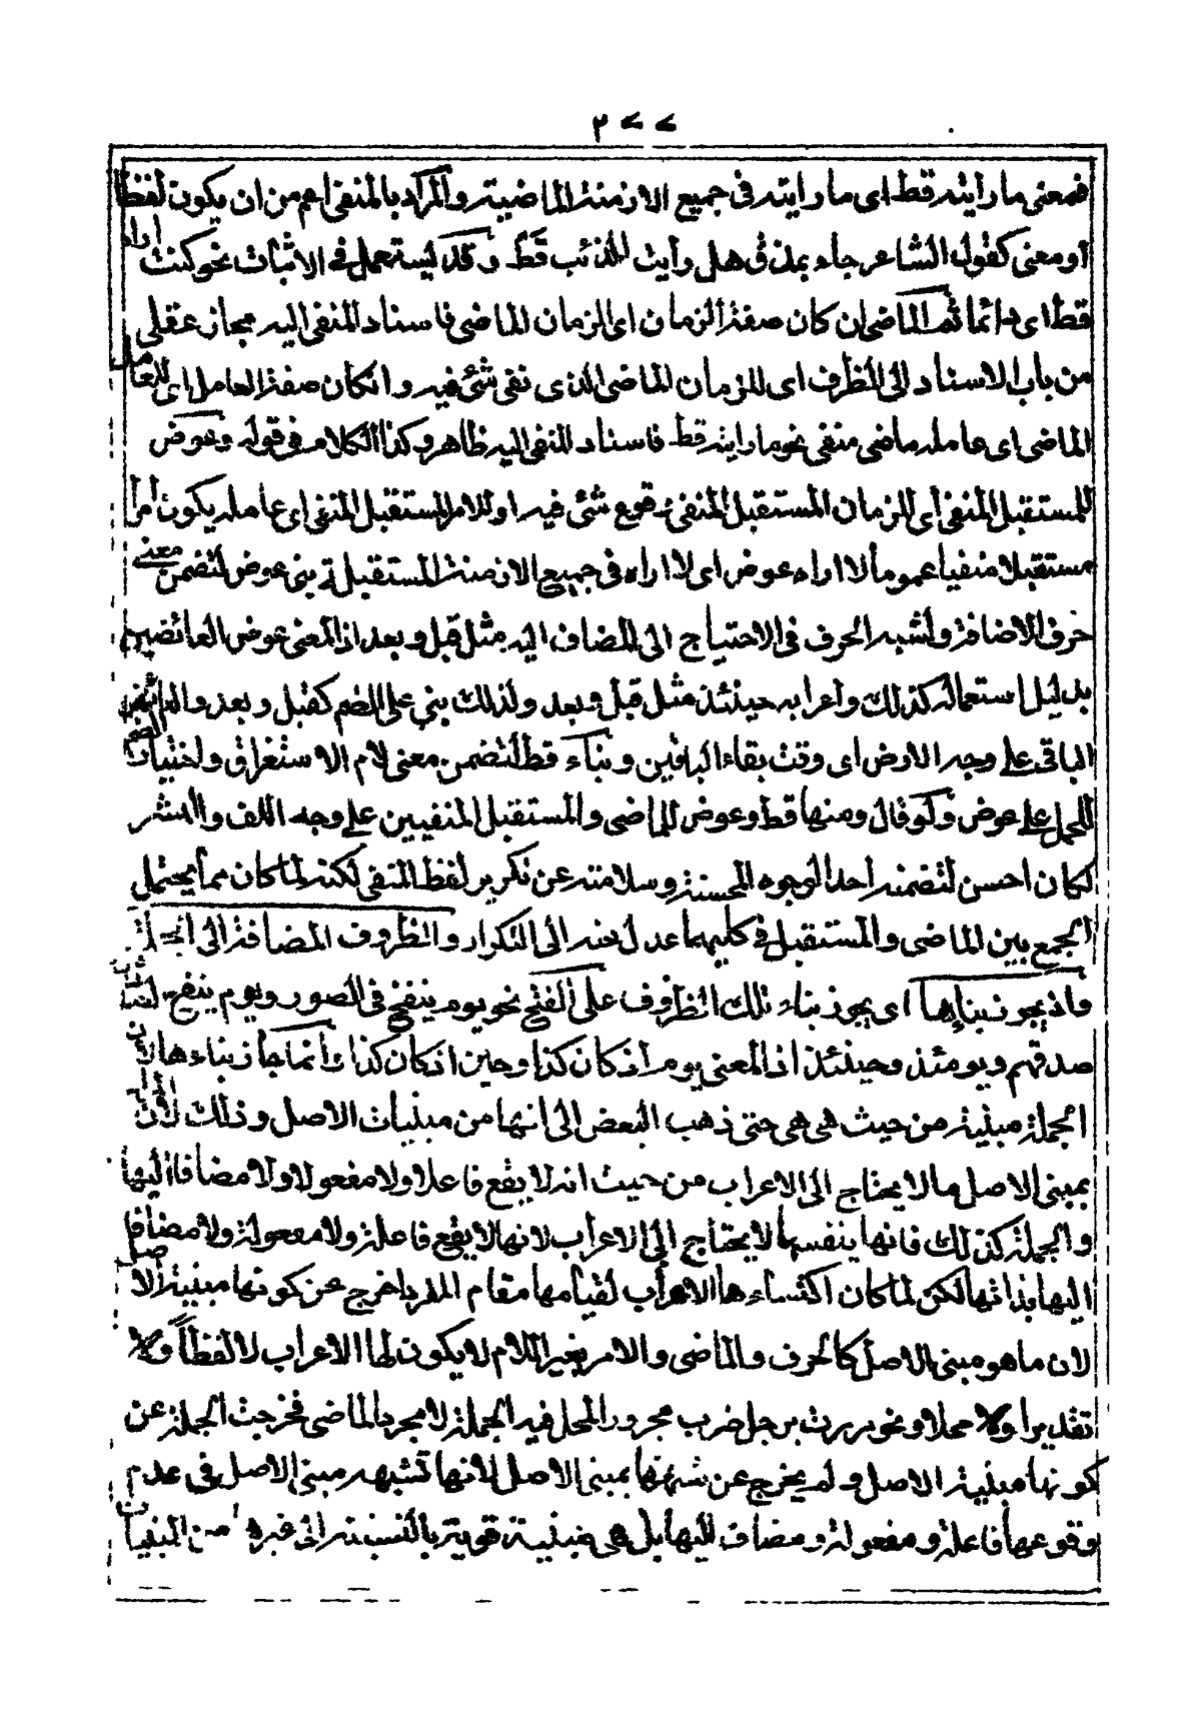 ٢٧٧
فمعنى ما رأيته قط اى ما رايته فى جميع الازمنة الماضية والمراد بالمنفى اعم من ان يكون لفظا
أو معنى كقول الشاعر جاء بمذق هل رأيت الذئب قط وقد يستعمل فى الاثبات نحو كنت اراه
قط اى دائما ثم الماضى ان كان صفة الزمان اى الزمان الماضى فاسناد المنفى اليه مجاز عقلى
من باب الاسناد الى الظرف اى للزمان الماضى الذى نفى شئ فيه وانكان صفة العامل اى للعامل
الماضى اى عامله ماضى منفى نحو ما رايته قط فاسناد المنفى اليه ظاهر وكذا الكلام فى قوله وعوض
للمستقبل المنفى أى للزمان المستقبل المنفى وقوع شئ فيه او للامر المستقبل المنفى اى عامله يكون أمرا
مستقبلا منفيا عموما لا اراه عوض اى لا اراه فى جميع الازمنة المستقبلة بنى عوض لتضمن معنى
حرف الاضافة ولشبه الحرف فى الاحتياج الى المضاف اليه مثل قبل وبعد اذ المعنى عوض العائضين
بدليل استعماله كذلك واعرابه حينئذ مثل قبل وبعد ولذلك بني على الضم كقبل وبعد والعائض
الباقى على وجه الارض اى وقت بقاء الباقين وبناء قط لتضمن معنى لام الاستغراق واختيار الضم
للحمل على عوض ولو قال ومنها قط وعوض للماضى والمستقبل المنفيين على وجه اللف والنشر
لكان احسن لتضمنه أحد الوجوه المحسنة وسلامته عن تكرير لفظ المنفى لكنه لما كان مما يحتمل
الجمع بين الماضى والمستقبل فى كليهما عدل عنه الى التكرار والظروف المضافة الى الجملة
واذ يجوز بناءها اى يجوز بناء تلك الظروف على الفتح نحو يوم ينفخ فى الصور ويوم ينفع
صدقهم ويومئذ وحينئذ اذ المعنى يوم اذ كان كذا وحين اذ كان كذا وانما جاز بناءها لان
الجملة مبنية من حيث هى هى حتى ذهب البعض الى انها من مبنيات الاصل وذلك لأن المراد
بمبنى الاصل ما لا يحتاج الى الاعراب من حيث انه لا يقع فاعلا ولا مفعولا ولا مضافا اليها
والجملة كذلك فانها بنفسها لا يحتاج الى الاعراب لانها لا يقع فاعلة ولا مفعولة ولا مضافا
اليها بذاتها لكن لما كان اكتساءها الاعراب لقيامها مقام المفرد اخرج عن كونها مبنية الاصل
لان ما هو مبنى الاصل كالحرف والماضى والامر بغير اللام لا يكون لها الاعراب لا لفظاً ولا
تقديرا ولا محلا ونحو مررت برجل ضرب مجرور المحل فيه الجملة لا مجرد الماضى فخرجت الجملة عن
كونها مبنية الاصل ولم يخرج عن شبهها بمبنى الاصل لانها تشبهه مبنى الاصل فى عدم
وقوعها فاعلة ومفعولة ومضاف اليها بل هى مبنية قوية بالنسبة الى غيرها من المبنيات